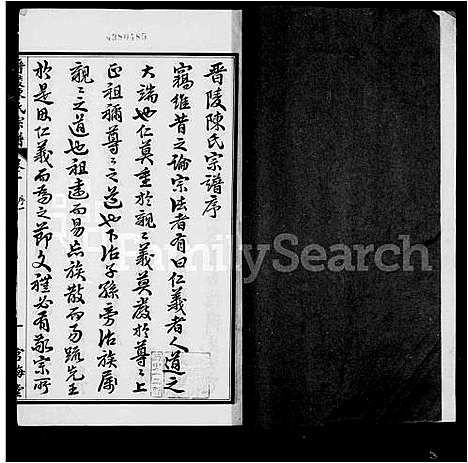 4380485
晋陵陳氏宗譜序
竊維昔之論宗法者有曰仁義者人道之
大端也仁莫重於親〻義莫嚴於尊〻上
正祖禰尊〻之道也下治子孫旁治族屬
親〻之道也祖遠而易忘族散而易疏先王
於是因仁義而爲之節文禮必有敬宗所
晋陵陳氏宗譜 卷一
FamilySearch